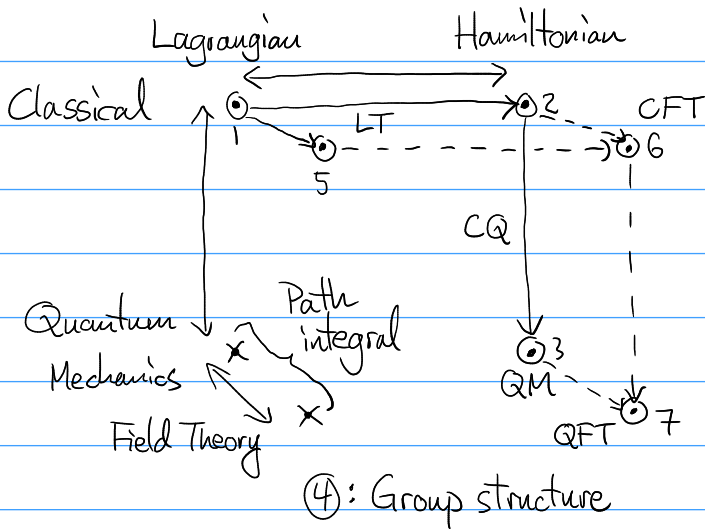 Lagrangian
Hamiltonian
Classical
1
LT
2
CFT
5
6
CQ
Quantum
Path
integral
Mechanics
3
QM
Field Theory
QFT
7
④: Group structure